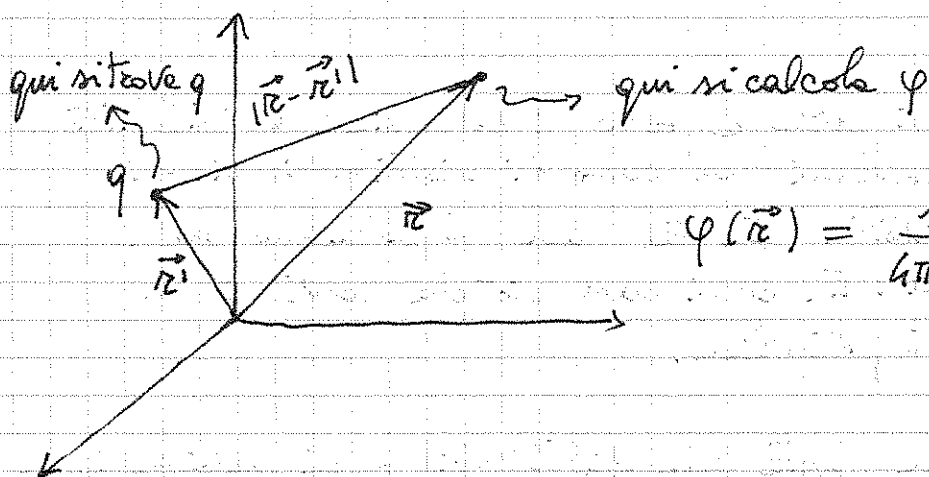 qui si trova q
|r⃗ - r⃗'|
qui si calcola φ
q
r⃗
r⃗'
φ(r⃗) =
4π